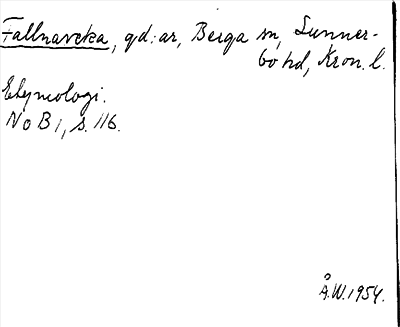 Fallnaveka, gd:ar, Berga sn, Sunner-
bo hd, Kron. l.
Etymologi.
NoB 1, s. 116.
Å.W. 1954.